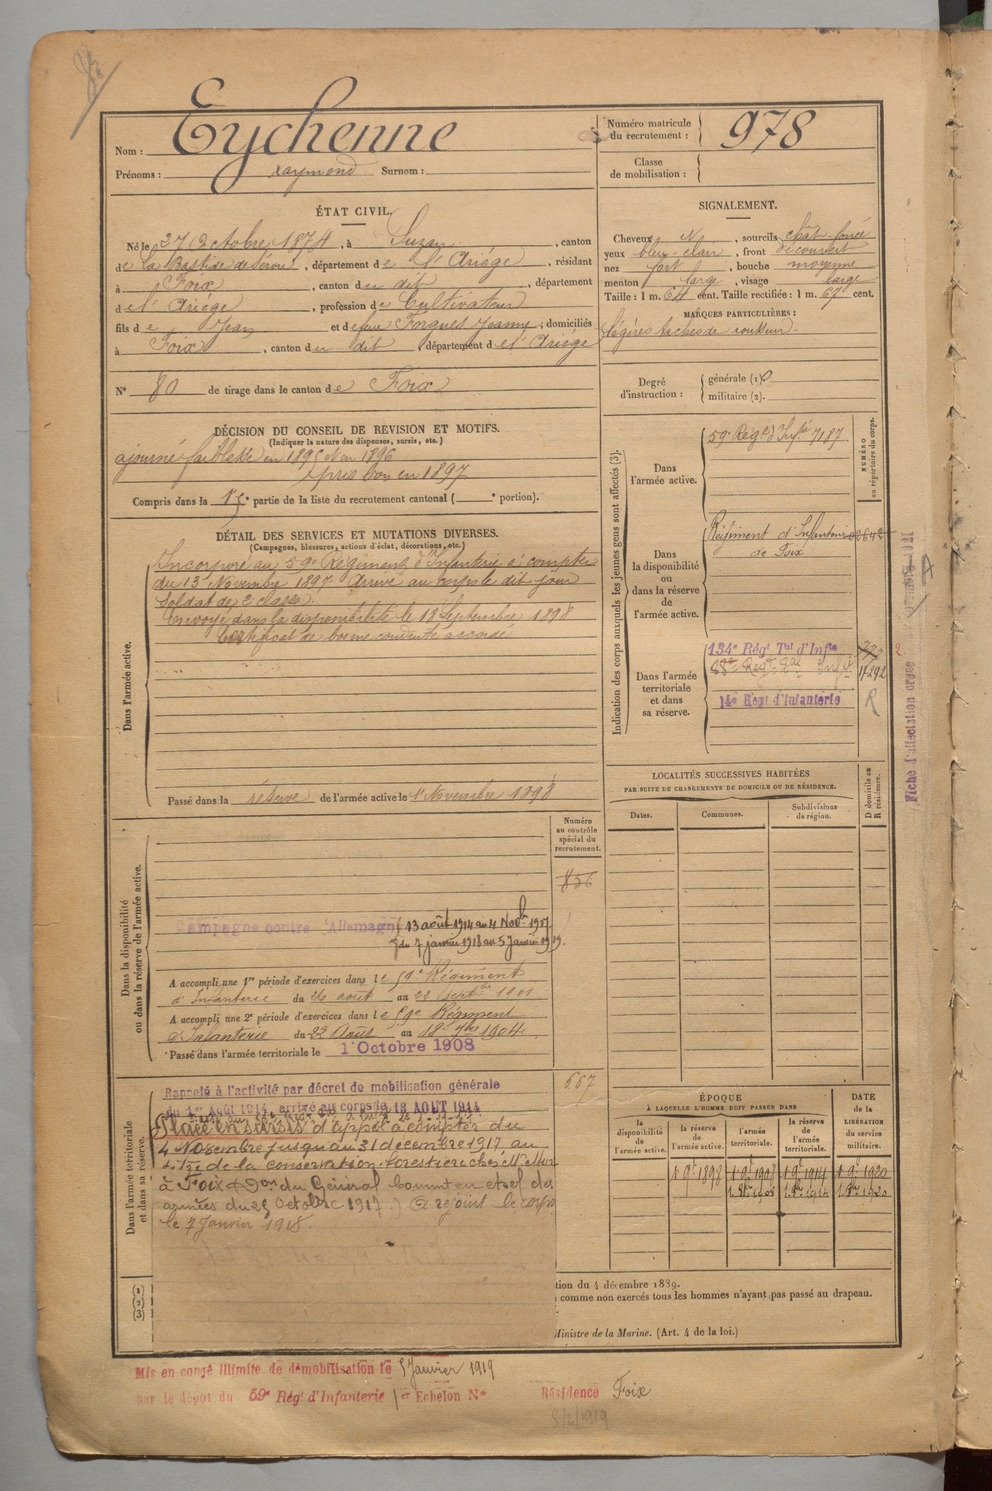 Nom : Eychenne
Prénoms : Raymond Surnom :
Numéro matricule du recrutement : 978
Classe de mobilisation :
ÉTAT CIVIL.
Né le 27 Octobre 1874, à Suzan, canton
de La Bastide de Sérou, département de l'Ariège, résidant
à Foix, canton du dit, département
de l'Ariège, profession de Cultivateur
fils de Jean et de feue Forgues Jeanne, domiciliés
à Foix, canton du dit, département de l'Ariège
N° 80 de tirage dans le canton de Foix
DÉCISION DU CONSEIL DE RÉVISION ET MOTIFS.
(Indiquer la nature des dispenses, sursis, etc.)
ajourné faiblesse en 1895 et en 1896
pris bon en 1897
Compris dans la 1re partie de la liste du recrutement cantonal ( e portion).
DÉTAIL DES SERVICES ET MUTATIONS DIVERSES.
(Campagnes, blessures, actions d'éclat, décorations, etc.)
Dans l'armée active.
Incorporé au 59e Régiment d'Infanterie à compter
du 13 Novembre 1897. Arrivé au corps le dit jour
Soldat de 2e classe.
Envoyé dans la disponibilité le 18 Septembre 1898
Certificat de bonne conduite accordé
Passé dans la réserve de l'armée active le 1er Novembre 1898
SIGNALEMENT.
Cheveux N, sourcils chât-foncé
yeux bleu-clair, front découvert
nez fort, bouche moyenne
menton large, visage large
Taille : 1 m. 64 cent. Taille rectifiée : 1 m. 67 cent.
MARQUES PARTICULIÈRES :
légères taches de rousseur.
Degré d'instruction :
générale (1)
militaire (2).
Indication des corps auxquels les jeunes gens sont affectés (3).
NUMÉRO au répertoire du corps.
Dans l'armée active.
59e Régt d'Infie 7187
Dans la disponibilité ou dans la réserve de l'armée active.
Régiment d'Infanterie
de Foix
Dans l'armée territoriale et dans sa réserve.
134e Régt Tal d'Infie
14e Regt d'Infanterie
R
Fiche d'affectation créée
LOCALITÉS SUCCESSIVES HABITÉES
PAR SUITE DE CHANGEMENTS DE DOMICILE OU DE RÉSIDENCE.
Dates.
Communes.
Subdivisions de région.
D domicile ou R résidence.
Numéro au contrôle spécial du recrutement.
856
Dans la disponibilité ou dans la réserve de l'armée active.
Campagne contre l'Allemagne 13 août 1914 au 4 Novb 1917
du 7 janvier 1918 au 5 Janvier 1919.
A accompli une 1re période d'exercices dans le 59e Régiment
d'Infanterie du 26 août au 22 septbre 1901
A accompli une 2e période d'exercices dans le 59e Régiment
d'Infanterie du 22 Août au 18 7bre 1904
Passé dans l'armée territoriale le 1er Octobre 1908
667
Dans l'armée territoriale et dans sa réserve.
Rappelé à l'activité par décret de mobilisation générale
du 1er Août 1914, arrivé au corps le 13 AOUT 1914
Placé en sursis d'appel à compter du
4 Novembre jusqu'au 31 décembre 1917 au
titre de la conservation forestière chez
à Foix Don du Général commt en chef des
armées du 25 Octobre 1917. A rejoint le corps
le 7 Janvier 1918.
ÉPOQUE
À LAQUELLE L'HOMME DOIT PASSER DANS
la disponibilité de l'armée active.
la réserve de l'armée active.
l'armée territoriale.
la réserve de l'armée territoriale.
DATE de la LIBÉRATION du service militaire.
1 9bre 1898 1 9bre 1908 1 9bre 1914 1 9bre 1920
1 8bre 1908 1 8bre 1914 1 8bre 1920
(1)
(2)
(3)
tion du 4 décembre 1889.
comme non exercés tous les hommes n'ayant pas passé au drapeau.
Ministre de la Marine. (Art. 4 de la loi.)
Mis en congé illimité de démobilisation le 5 Janvier 1919
par le dépôt du 59e Régt d'Infanterie 1er Echelon N° Résidence Foix